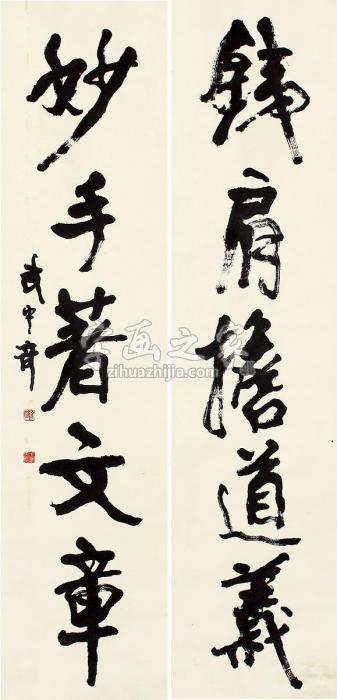 銕肩擔道義
妙手著文章
武中奇
字画之家
zihuazhijia.com